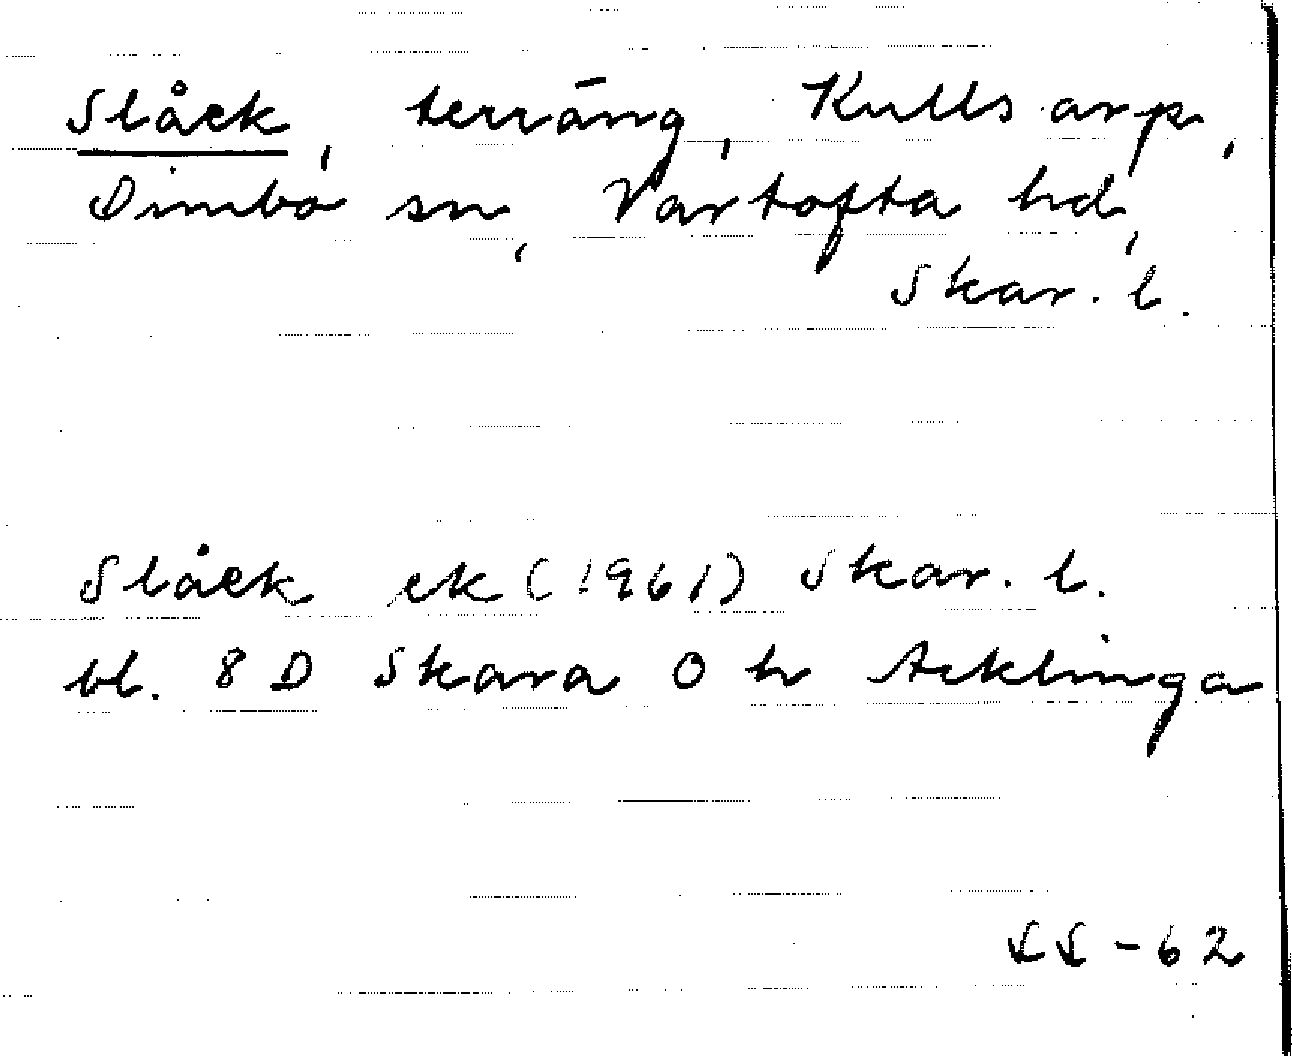 Slåek, terräng, Kullsarp,
Dimbo sn, Vartofta hd,
Skar. l.
Slåek ek (1961) Skar. l.
bl. 8 D Skara 0 h Acklinga
SS-62